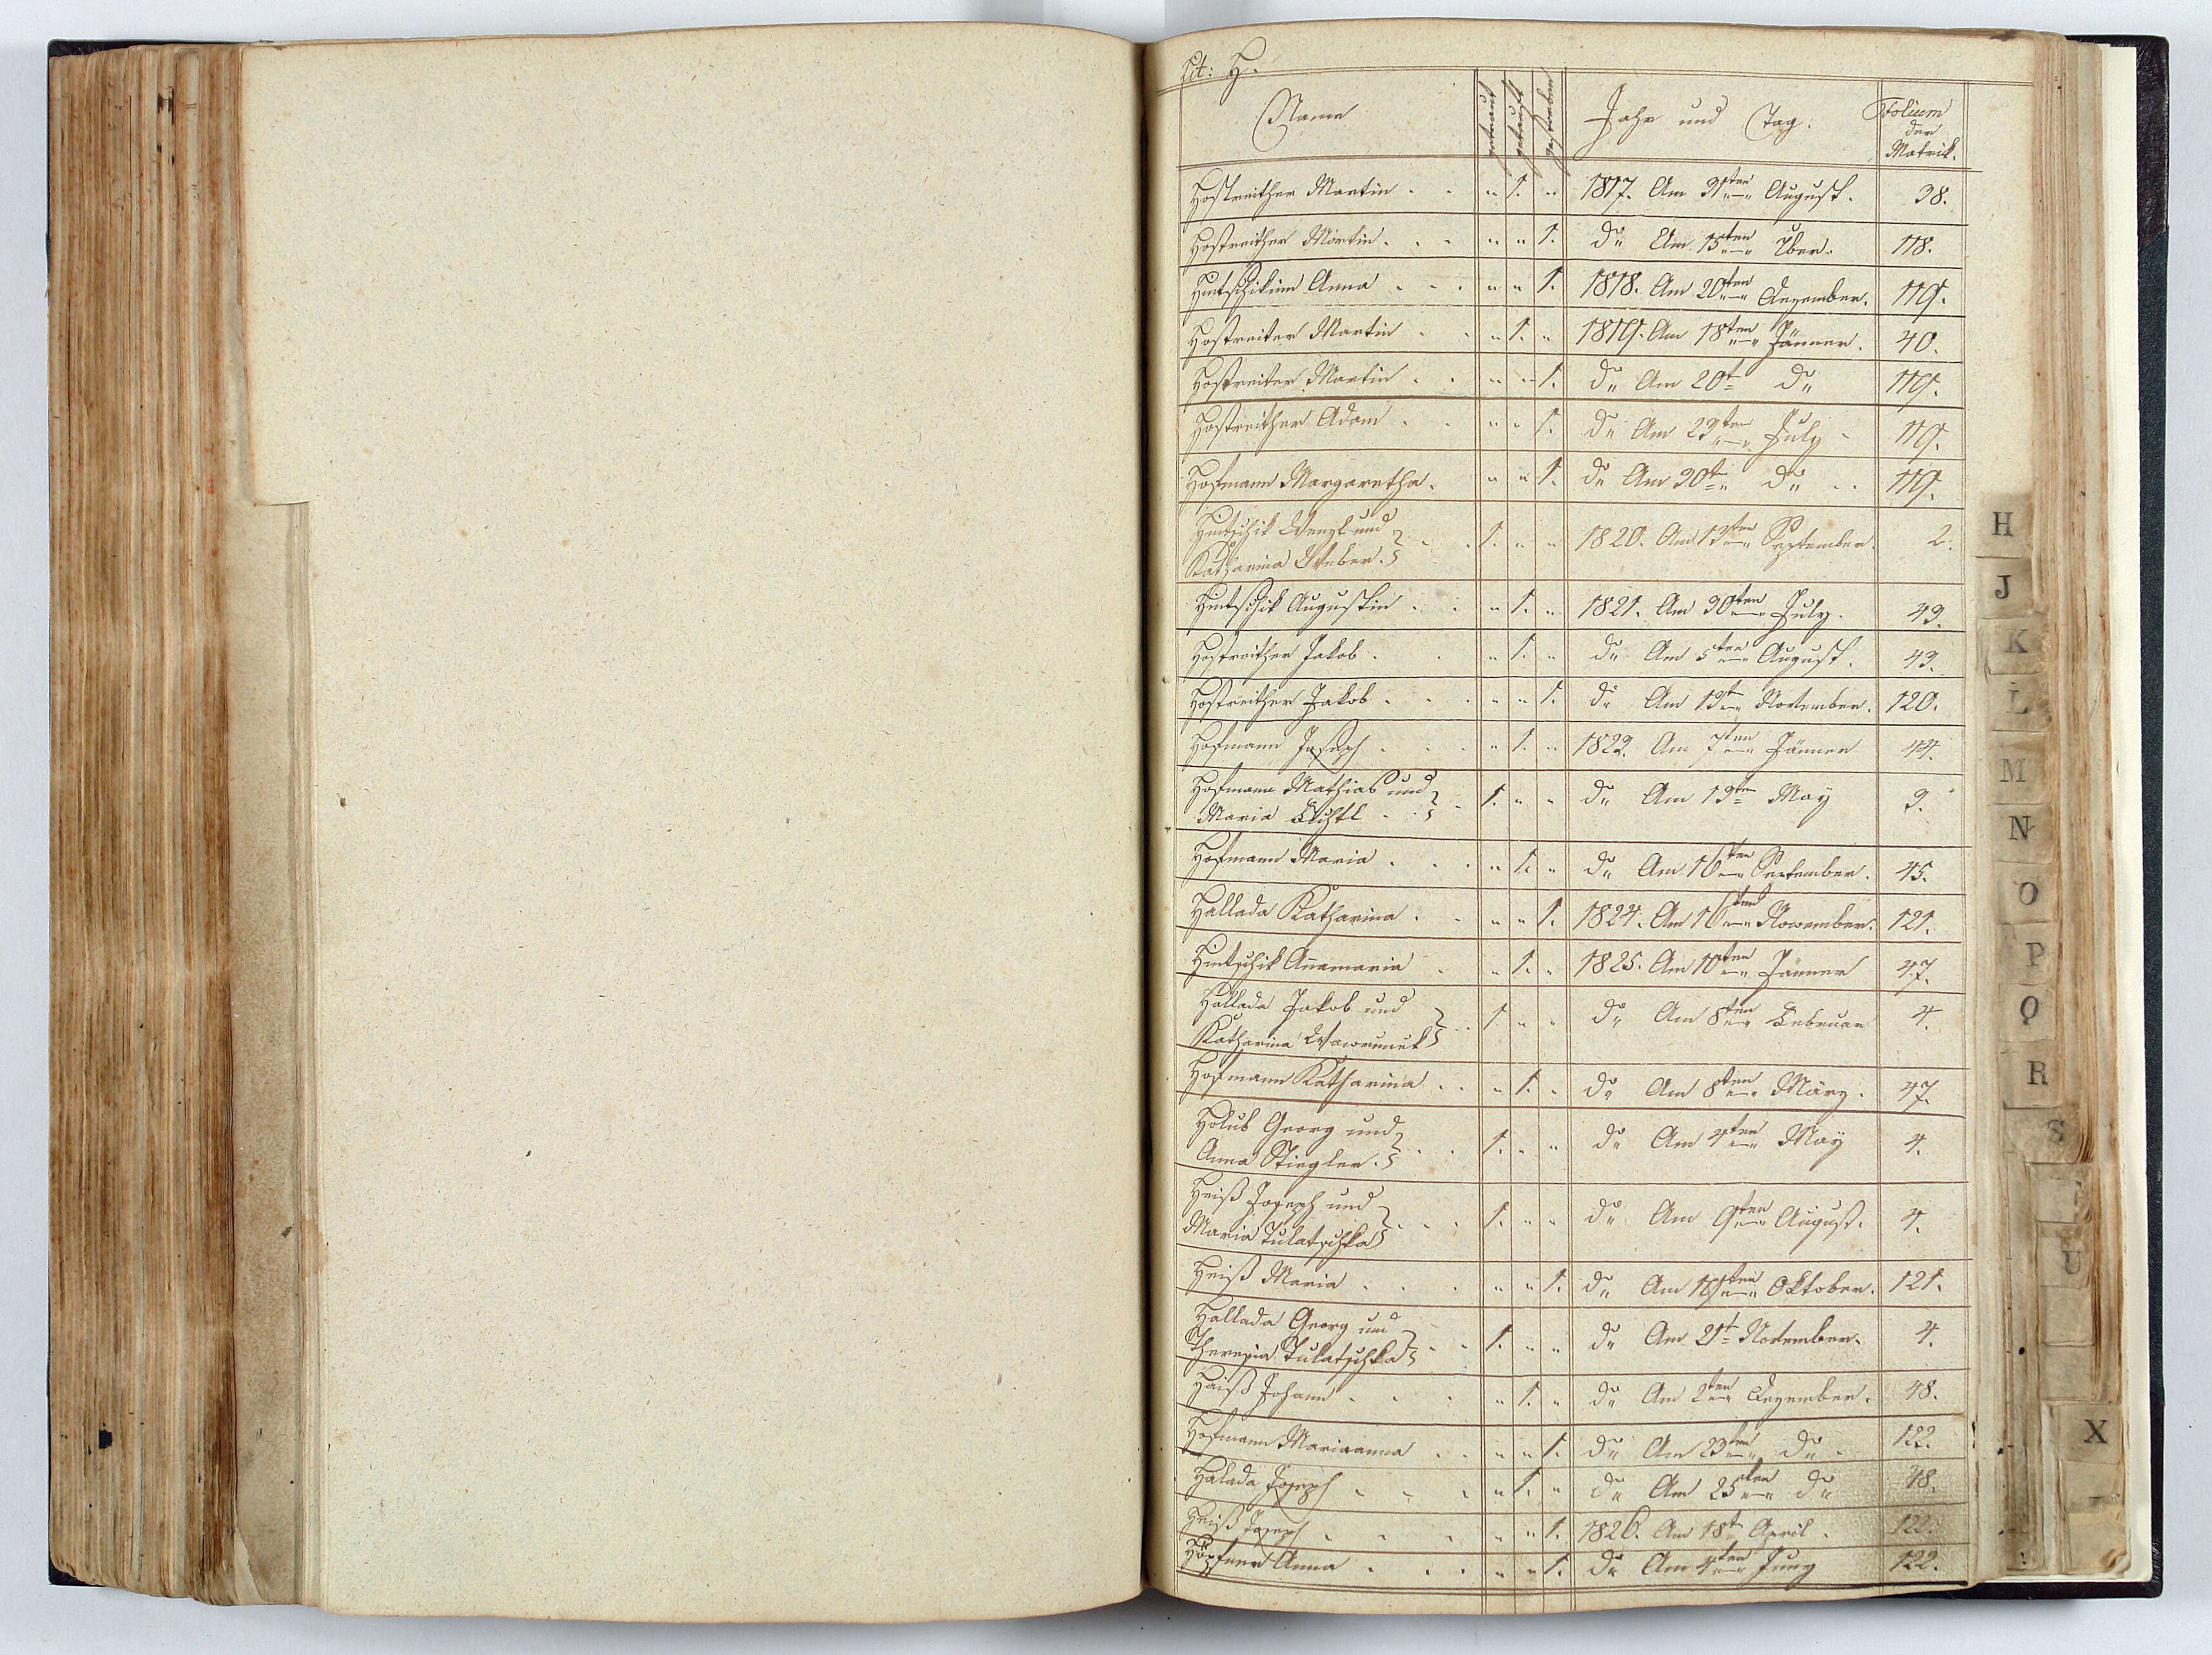 Lit: H.
Name getraut getauft gestorben Jahr und Tag. Folium der Matrik.
Hostreither Martin . . " 1. " 1817. Am 31ten August. 38.
Hostreither Martin . . . " " 1. do Am 15ten 7ber. 118.
Hintschikinn Anna . . . " " 1. 1818. Am 20ten Dezember. 119.
Hostreiter Martin . . " 1. " 1819. Am 18ten Jänner. 40.
Hostreiter Martin . . " " 1. do Am 20t do 119.
Hostreither Adam . . " " 1. do Am 23ten July 119.
Hofmann Margaretha . " " 1. do Am 30t do . . 119.
Hintschik Wenzl und
Katharina Weber. . . 1. " " 1820. Am 13ten September. 2.
Hintschik Augustin . . " 1. " 1821. Am 30ten July. 43.
Hostreither Jakob . . " 1. " do Am 5ten August. 43.
Hostreither Jakob . . . " " 1. do Am 13t November. 120.
Hofmann Joseph . . . " 1. " 1823. Am 7ten Jänner 44.
Hofmann Mathias und
Maria . . 1. " " do Am 13ten May 3.
Hofmann Maria . . . " 1. " do Am 16ten September. 45.
Hallada Katharina . . " " 1. 1824. Am 16ten November. 121.
Hintschik Anamaria . " 1. " 1825. Am 10ten Jänner 47.
Hallada Jakob und
Katharina Wawruneck . . 1 " " do Am 8ten Februar 4.
Hofmann Katharina . . " 1. " do Am 8ten März. 47.
Holub Georg und
Anna Stiegler. . . 1. " " do Am 4ten May 4.
Heiß Joseph und
Maria Tulatschka . . . 1. " " do Am 9ten August. 4.
Heiß Maria . . . " " 1. do Am 19ten Oktober. 121.
Hallada Georg und
Theresia Tulatschka . . 1. " " do Am 21t November. 4.
Haiß Johann . . . " 1. " do Am 2ten Dezember. 48.
Hofmann Marianna . . " " 1. do Am 23ten do . 122.
Halada Joseph . . . " 1. " do Am 25ten do 48.
Heiß Joseph . . . " " 1. 1826. Am 18t April . 122.
Höpfner Anna . . . " " 1. do Am 4ten Juny 122.
H
J
K
L
M
N
O
P
Q
R
S
T
U
X